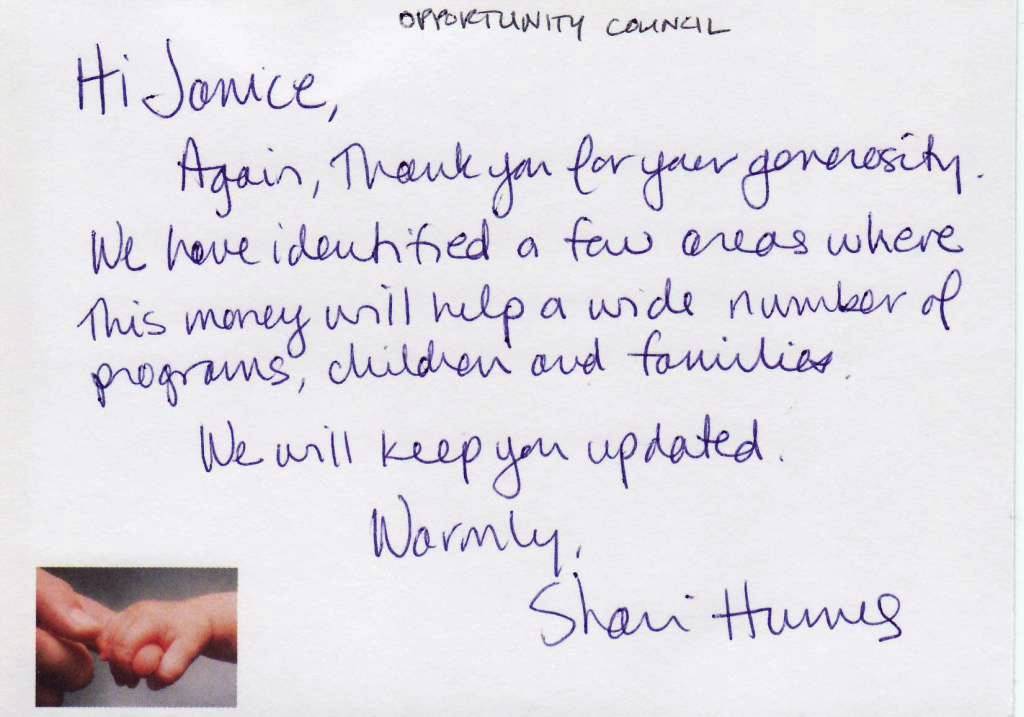 OPPORTUNITY COUNCIL
Hi Janice,
Again, Thank you for your generosity.
We have identified a few areas where
this money will help a wide number of
programs, children and families.
We will keep you updated.
Warmly,
Shari Humes